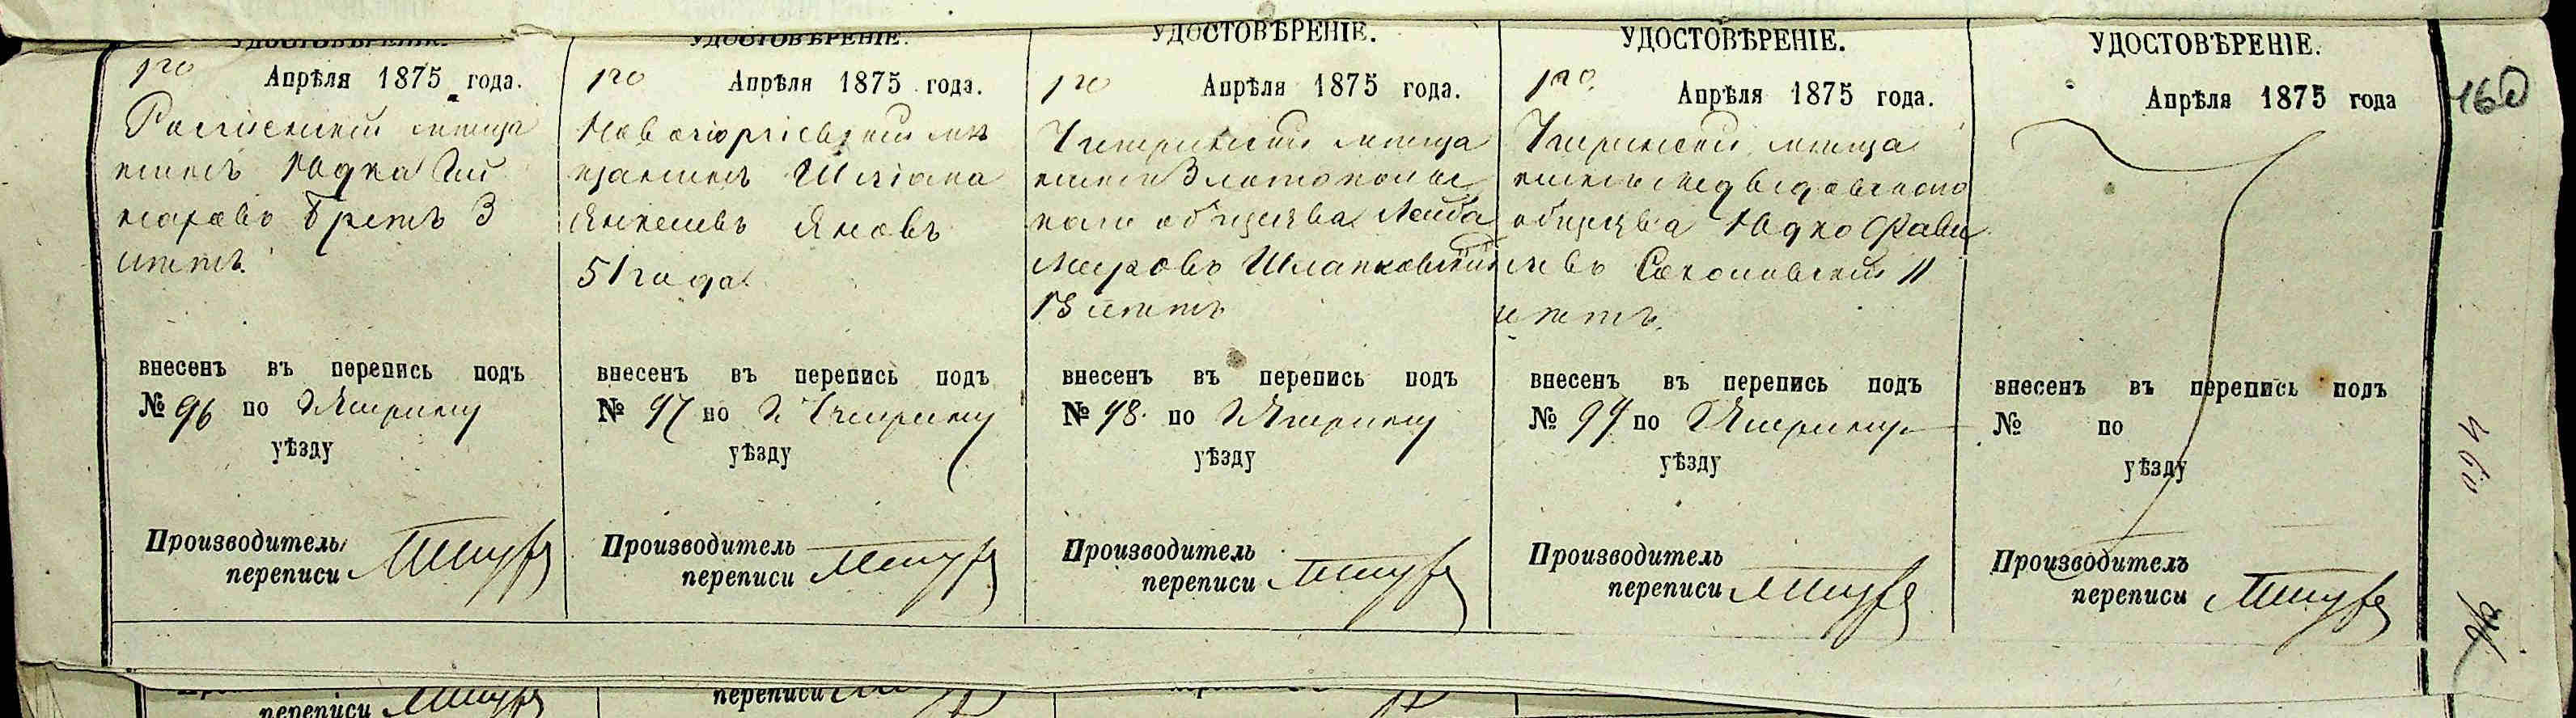 УДОСТОВѢРЕНІЕ.
1го Апрѣля 1875 года.
мѣща
нинъ Юдка
3
лѣтъ.
внесенъ въ перепись подъ
№ 96 по г Чигирину
уѣзду
Производитель
переписи
УДОСТОВѢРЕНІЕ.
1го Апрѣля 1875 года.
Новогеоргіевскій мѣ
щанинъ
Янкелевъ Яновъ
51 года
внесенъ въ перепись подъ
№ 97 по г Чигирину
уѣзду
Производитель
переписи
УДОСТОВѢРЕНІЕ.
1го Апрѣля 1875 года.
Чигиринскій мѣща
нинъ Златополь
каго общества Лейба
Меировъ Шлапковскій
13 лѣтъ
внесенъ въ перепись подъ
№ 98. по г Чигирину
уѣзду
Производитель
переписи
УДОСТОВѢРЕНІЕ.
1го Апрѣля 1875 года.
Чигиринскій мѣща
нинъ Медведовскаго
общества Юдко
Соколовскій 11
лѣтъ.
внесенъ въ перепись подъ
№ 99 по г Чигирину
уѣзду
Производитель
переписи
УДОСТОВѢРЕНІЕ.
Апрѣля 1875 года
внесенъ въ перепись подъ
№ по
уѣзду
Производитель
переписи
460
переписи
переписи